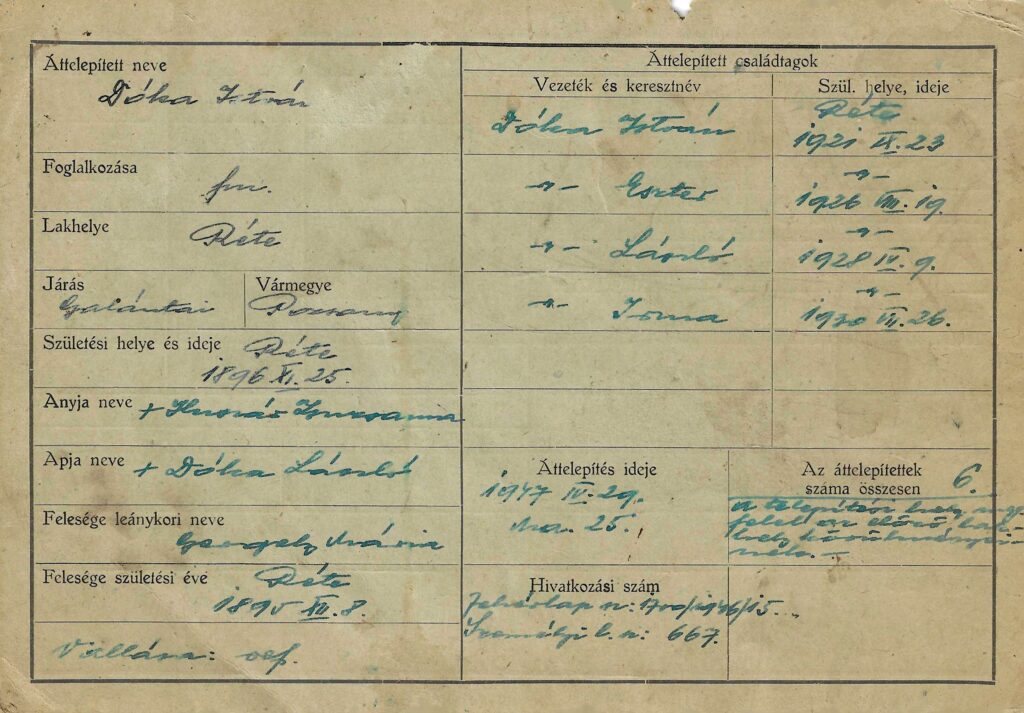 Áttelepített neve
Dóka István
Foglalkozása
fm.
Lakhelye
Réte
Járás
Galántai
Vármegye
Pozsony
Születési helye és ideje Réte
1896 XI. 25.
Anyja neve + Huszár Zsuzsanna
Apja neve + Dóka László
Felesége leánykori neve
Gergely Mária
Felesége születési éve Réte
1895 XII. 8.
Vallása: ref.
Áttelepített családtagok
Vezeték és keresztnév
Szül. helye, ideje
Dóka István
Réte
1921 IX. 23
-"- Eszter
-"-
1926 VIII. 19.
-"- László
-"-
1928 IV. 9.
-"- Irma
-"-
1930 VII. 26.
Áttelepítés ideje
1947 IV. 29.
25.
Az áttelepítettek
száma összesen 6.
A telepítési hely meg
felel az előző lak
hely körülményei
nek. -
Hivatkozási szám
Fehérlap n: 1700/1946/15.
Személyi l. n: 667.